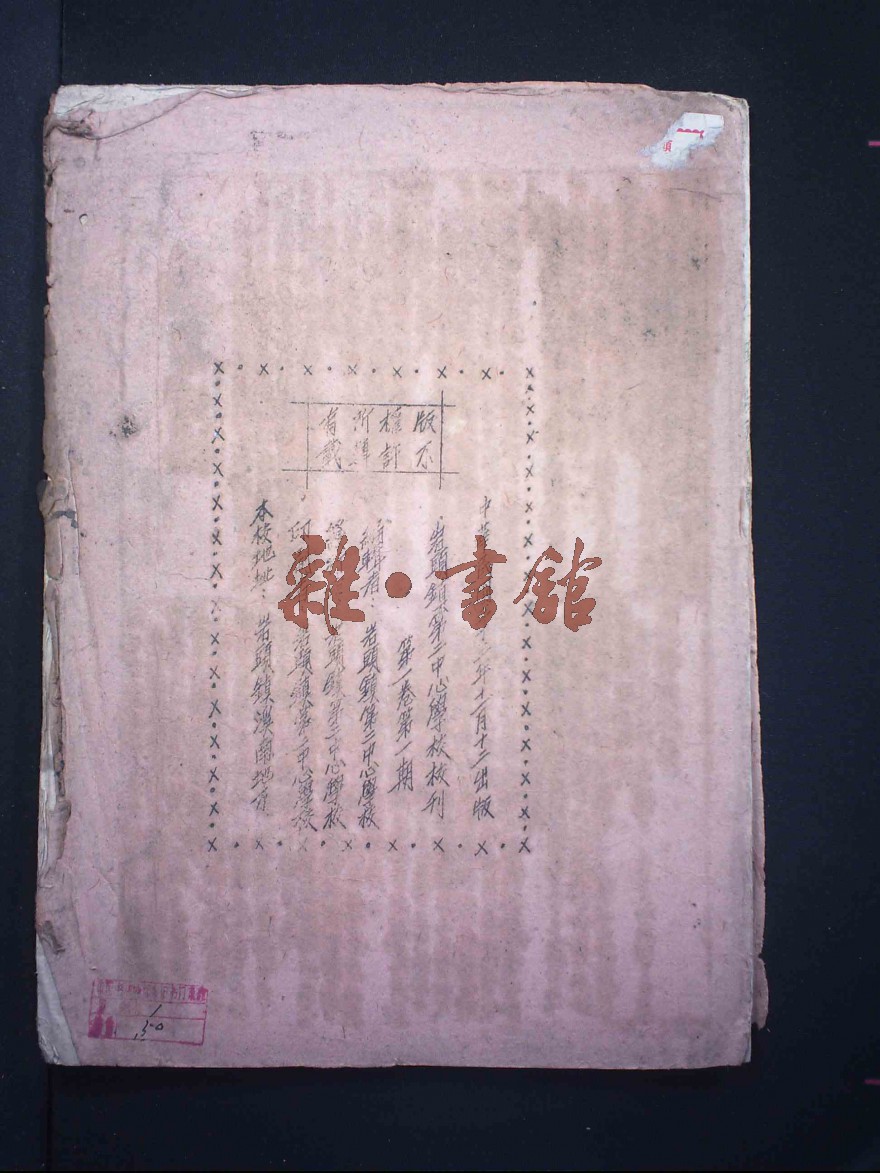 版權所有
不許轉載
中華
年十二月十二出版
岩頭鎮第二中心學校校刊
第一卷第一期
編輯者：岩頭鎮第二中心學校
岩頭鎮第二中心學校
印
岩頭鎮第二中心學校
本校地址：岩頭鎮溪南地方
雜·書館